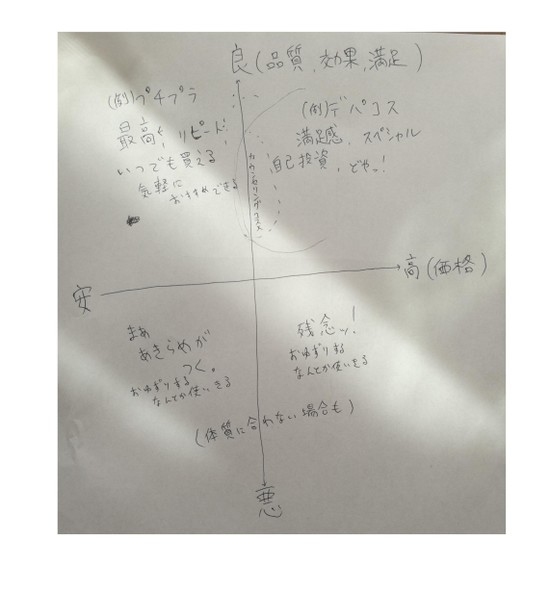 良(品質,効果,満足)
(例)プチプラ
最高!,リピート
いつでも買える
気軽に
おすすめできる
カウンセリングコスメ
(例)デパコス
満足感,スペシャル
自己投資,どやっ!
安
高(価格)
まあ
あきらめが
つく。
おゆずりする
なんとか使いきる
残念ッ!
おゆずりする
なんとか使いきる
(体質に合わない場合も)
悪